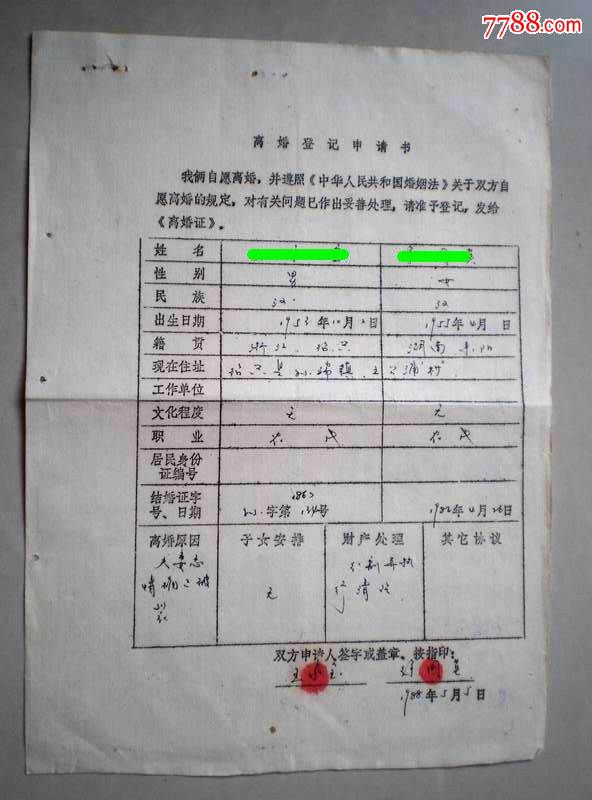 7788.com
离婚登记申请书
我俩自愿离婚,并遵照《中华人民共和国婚姻法》关于双方自
愿离婚的规定,对有关问题已作出妥善处理,请准予登记,发给
《离婚证》。
姓名
性别 男 女
民族 汉 汉
出生日期 1953年10月2日 1955年4月 日
籍贯 浙江 湖南
现在住址 县 镇 村
工作单位
文化程度 无 无
职业 农民 农民
居民身份
证编号
结婚证字
号、日期 字第 号 1982年4月26日
离婚原因 子女安排 财产处理 其它协议
夫妻感
情 破
裂
无
双方申请人签字或盖章、按指印:
1988年5月5日